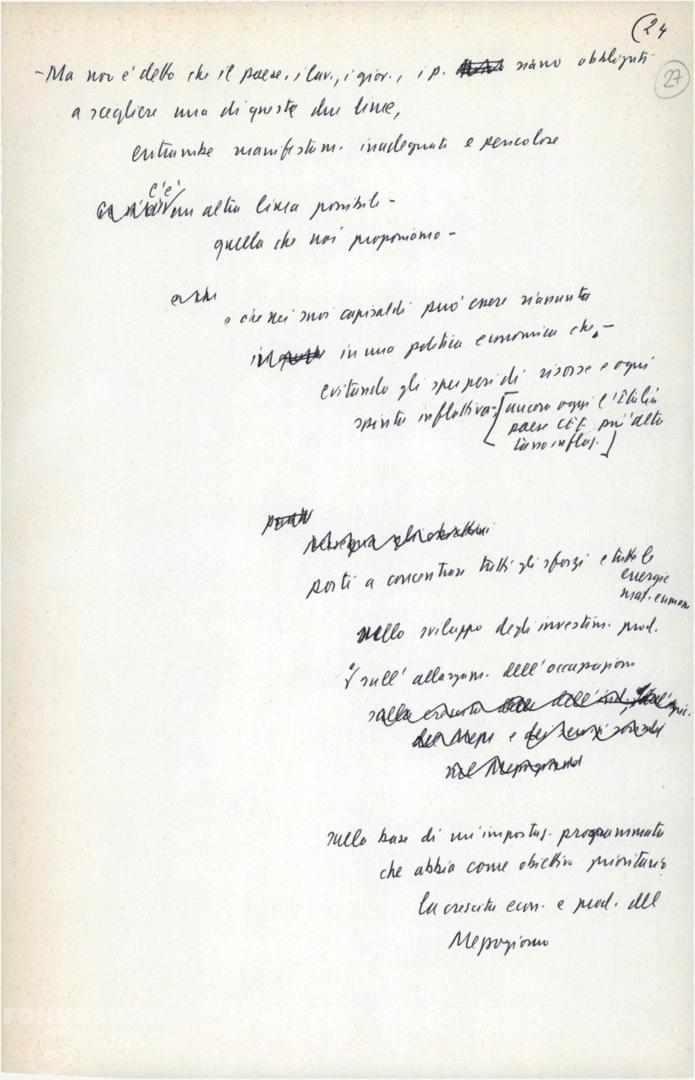 (24
27
- Ma non è detto che il paese, i lav., i giov., i p. siano obbligati
a scegliere una di queste due linee,
entrambe manifestam. inadeguate e pericolose
c'è
un altra linea possibile -
quella che noi proponiamo -
e che nei suoi capisaldi può essere riassunta
in una politica economica che, -
evitando gli sperperi di risorse e ogni
spinta inflattiva - [ancora oggi l'Italia
paese CEE più alto
tasso inflaz.]
porti a concentrare tutti gli sforzi e tutte le
energie
mat. e umane
sullo sviluppo degli investim. prod.
e sull'allargam. dell'occupazione
dell'
e dei servizi sociali
nel Mezzogiorno
sulla base di un'impostaz. programmata
che abbia come obiettivo prioritario
la crescita econ. e prod. del
Mezzogiorno
FONDAZIONE